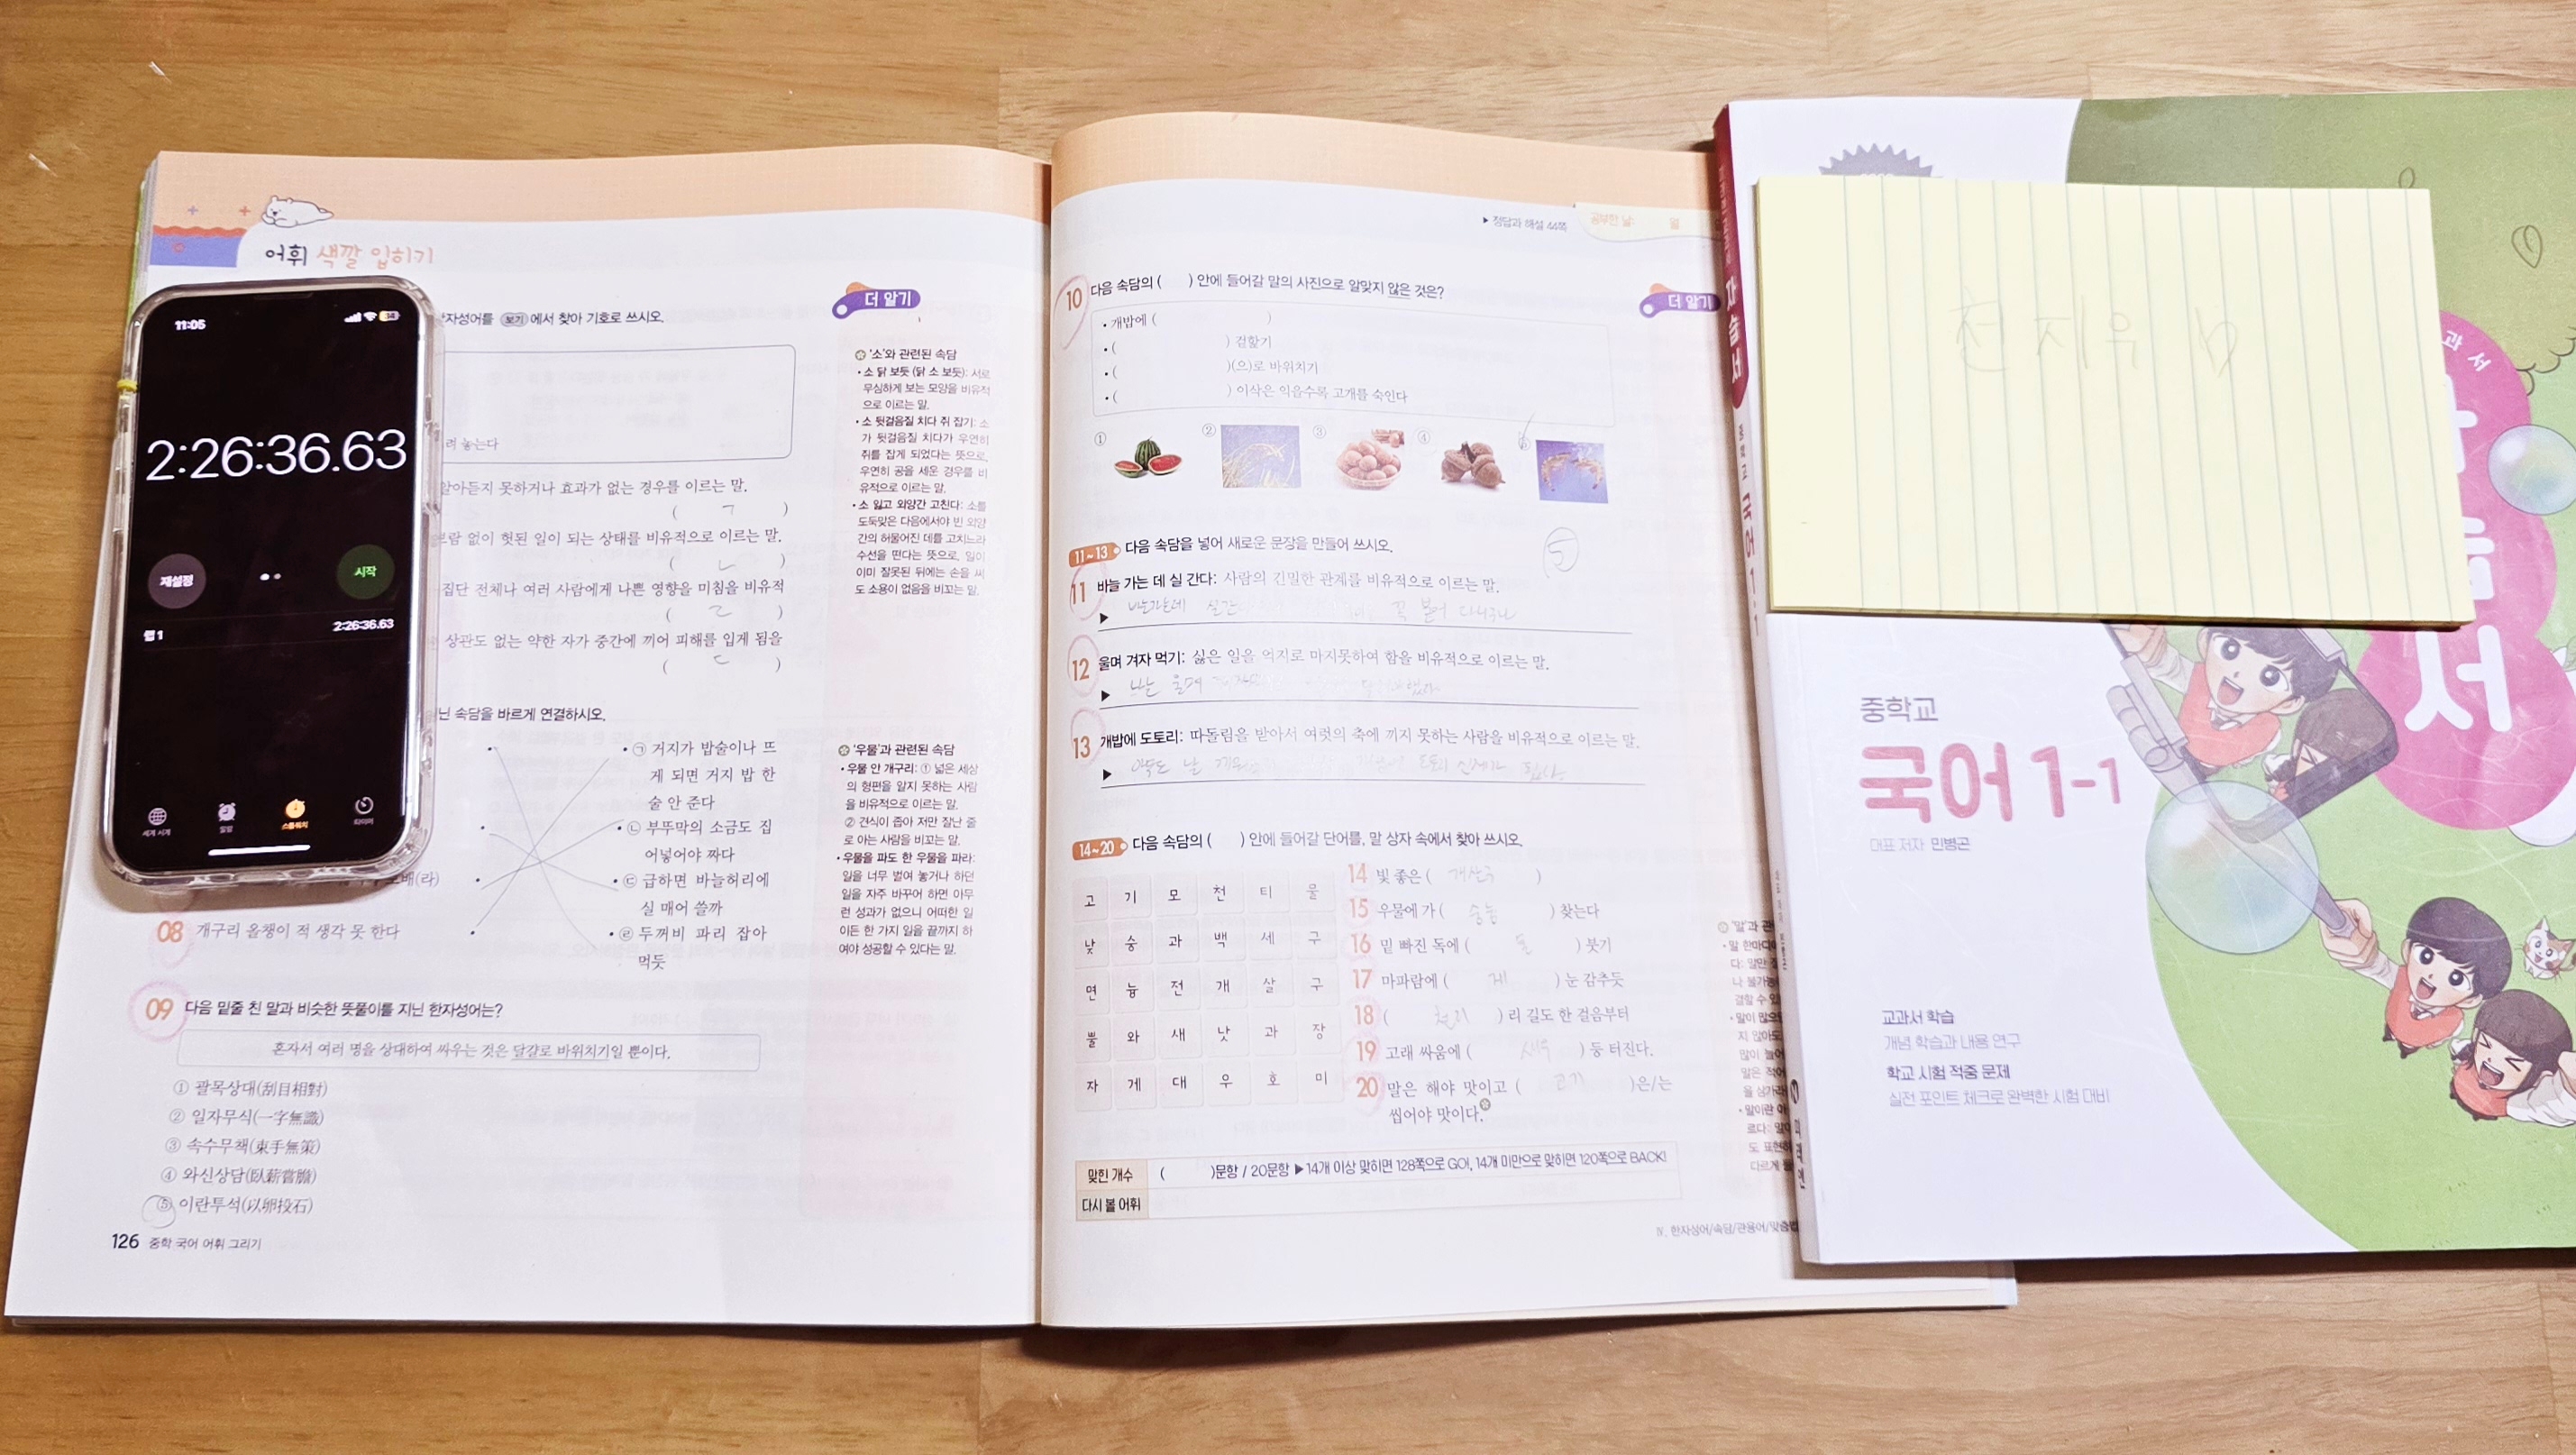 11:05
2:26:36.63
재설정
시작
랩 1
2:26:36.63
세계 시계
알람
스톱워치
타이머
어휘 색깔 입히기
한자성어를 보기 에서 찾아 기호로 쓰시오.
려 놓는다
알아듣지 못하거나 효과가 없는 경우를 이르는 말.
( ㄱ )
보람 없이 헛된 일이 되는 상태를 비유적으로 이르는 말.
( ㄴ )
집단 전체나 여러 사람에게 나쁜 영향을 미침을 비유적
( ㄹ )
상관도 없는 약한 자가 중간에 끼어 피해를 입게 됨을
( ㄷ )
속담을 바르게 연결하시오.
• ㉠ 거지가 밥술이나 뜨
게 되면 거지 밥 한
술 안 준다
• ㉡ 부뚜막의 소금도 집
어넣어야 짜다
• ㉢ 급하면 바늘허리에
실 매어 쓸까
• ㉣ 두꺼비 파리 잡아
먹듯
08 개구리 올챙이 적 생각 못 한다
09 다음 밑줄 친 말과 비슷한 뜻풀이를 지닌 한자성어는?
혼자서 여러 명을 상대하여 싸우는 것은 달걀로 바위치기일 뿐이다.
① 괄목상대(刮目相對)
② 일자무식(一字無識)
③ 속수무책(束手無策)
④ 와신상담(臥薪嘗膽)
⑤ 이란투석(以卵投石)
126 중학 국어 어휘 그리기
더 알기
'소'와 관련된 속담
• 소 닭 보듯 (닭 소 보듯): 서로
무심하게 보는 모양을 비유적
으로 이르는 말.
• 소 뒷걸음질 치다 쥐 잡기: 소
가 뒷걸음질 치다가 우연히
쥐를 잡게 되었다는 뜻으로,
우연히 공을 세운 경우를 비
유적으로 이르는 말.
• 소 잃고 외양간 고친다: 소를
도둑맞은 다음에서야 빈 외양
간의 허물어진 데를 고치느라
수선을 떤다는 뜻으로, 일이
이미 잘못된 뒤에는 손을 써
도 소용이 없음을 비꼬는 말.
'우물'과 관련된 속담
• 우물 안 개구리: ① 넓은 세상
의 형편을 알지 못하는 사람
을 비유적으로 이르는 말.
② 견식이 좁아 저만 잘난 줄
로 아는 사람을 비꼬는 말.
• 우물을 파도 한 우물을 파라:
일을 너무 벌여 놓거나 하던
일을 자주 바꾸어 하면 아무
런 성과가 없으니 어떠한 일
이든 한 가지 일을 끝까지 하
여야 성공할 수 있다는 말.
▶ 정답과 해설 44쪽
공부한 날: 월
10 다음 속담의 ( ) 안에 들어갈 말의 사진으로 알맞지 않은 것은?
• 개밥에 ( )
• ( ) 겉핥기
• ( )(으)로 바위치기
• ( ) 이삭은 익을수록 고개를 숙인다
① ② ③ ④
⑤
11~13 다음 속담을 넣어 새로운 문장을 만들어 쓰시오.
11 바늘 가는 데 실 간다: 사람의 긴밀한 관계를 비유적으로 이르는 말.
12 울며 겨자 먹기: 싫은 일을 억지로 마지못하여 함을 비유적으로 이르는 말.
13 개밥에 도토리: 따돌림을 받아서 여럿의 축에 끼지 못하는 사람을 비유적으로 이르는 말.
14~20 다음 속담의 ( ) 안에 들어갈 단어를, 말 상자 속에서 찾아 쓰시오.
고 기 모 천 티 물
낯 숭 과 백 세 구
면 늉 전 개 살 구
뿔 와 새 낫 과 장
자 게 대 우 호 미
14 빛 좋은 ( 개살구 )
15 우물에 가 ( 숭늉 ) 찾는다
16 밑 빠진 독에 ( 물 ) 붓기
17 마파람에 ( 게 ) 눈 감추듯
18 ( 천리 ) 리 길도 한 걸음부터
19 고래 싸움에 ( 새우 ) 등 터진다.
20 말은 해야 맛이고 ( 고기 )은/는
씹어야 맛이다.
맞힌 개수 ( )문항 / 20문항 ▶ 14개 이상 맞히면 128쪽으로 GO!, 14개 미만으로 맞히면 120쪽으로 BACK!
다시 볼 어휘
Ⅳ. 한자성어/속담/관용어/맞춤법
더 알기
천지우
자습서
국어 1-1
중학교
국어 1-1
대표 저자 민병곤
교과서 학습
개념 학습과 내용 연구
학교 시험 적중 문제
실전 포인트 체크로 완벽한 시험 대비
서